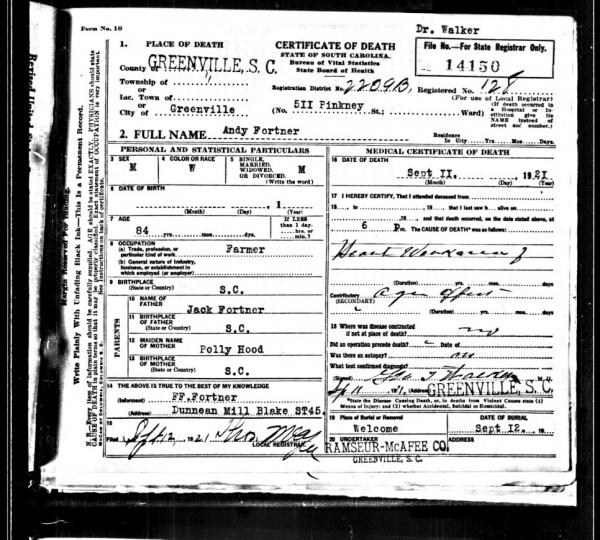 Form No. 10
Dr. Walker
1. PLACE OF DEATH
County of GREENVILLE, S. C.
Township of "
or
Inc. Town of
or
City of Greenville
CERTIFICATE OF DEATH
STATE OF SOUTH CAROLINA.
Bureau of Vital Statistics
State Board of Health
File No.—For State Registrar Only.
14150
Registration District No. 2209B Registered No. 128
(For use of Local Registrar)
(No. 511 Pinkney St.; Ward)
(If death occurred in a Hospital or Institution give its NAME instead of street and number.)
2. FULL NAME Andy Fortner
Residence In City Yrs. Mos. Days.
PERSONAL AND STATISTICAL PARTICULARS
3 SEX
M
4 COLOR OR RACE
W
5 SINGLE, MARRIED, WIDOWED, OR DIVORCED.
(Write the word)
M
6 DATE OF BIRTH
1
(Month) (Day) (Year)
7 AGE
84 yrs. mos. days.
If LESS than 1 day, hrs. or min.?
8 OCCUPATION
(a) Trade, profession, or particular kind of work Farmer
(b) General nature of Industry, business, or establishment in which employed (or employer)
9 BIRTHPLACE
(State or Country) S.C.
PARENTS
10 NAME OF FATHER Jack Fortner
11 BIRTHPLACE OF FATHER
(State or Country) S.C.
12 MAIDEN NAME OF MOTHER Polly Hood
13 BIRTHPLACE OF MOTHER
(State or Country) S.C.
14 THE ABOVE IS TRUE TO THE BEST OF MY KNOWLEDGE
(Informant) FF.Fortner
(Address) Dunnean Mill Blake ST45.
15
Filed Sept 12, 1921
LOCAL REGISTRAR
MEDICAL CERTIFICATE OF DEATH
16 DATE OF DEATH
Sept 11. , 1921
(Month) (Day) (Year)
17 I HEREBY CERTIFY, That I attended deceased from
19 , to , 19 , that I last saw h alive on
, 19 , and that death occurred, on the date stated above, at
6 P m. The CAUSE OF DEATH* was as follows:
Heart
(Duration) yrs. mos. days
Contributory
(SECONDARY)
(Duration) yrs. mos. days
18 Where was disease contracted
if not at place of death? no
Did an operation precede death? Date of
Was there an autopsy? no
What test confirmed diagnosis?
(Signed) M. D.
, 1921. (Address) GREENVILLE, S. C.
*State the Disease Causing Death, or, in deaths from Violent Causes state (1) Means of Injury; and (2) whether Accidental, Suicidal or Homicidal.
19 Place of Burial or Removal
Welcome
DATE OF BURIAL
Sept. 12. 19
20 UNDERTAKER
RAMSEUR-McAFEE CO.
ADDRESS
GREENVILLE, S. C.
Margin Reserved For Binding.
Write Plainly With Unfading Black Ink—This Is a Permanent Record.